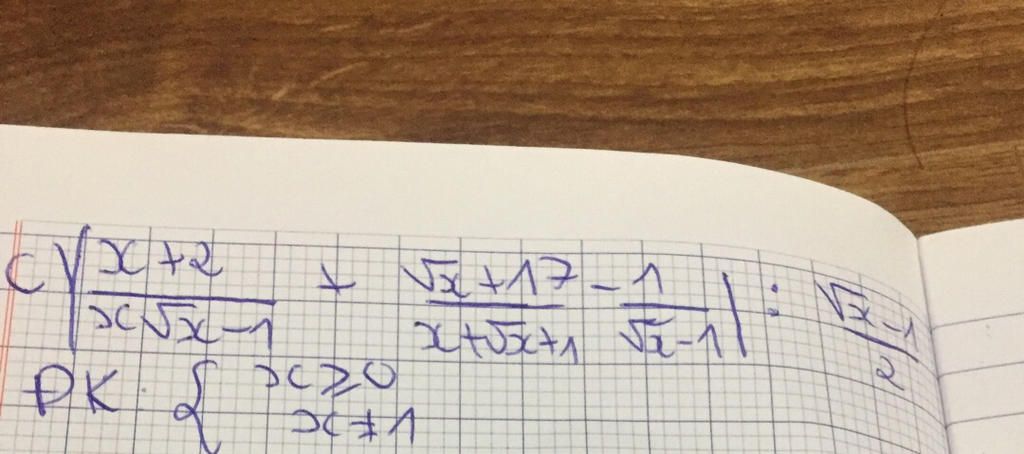 C) (x+2)/(x√x-1) + (√x+17)/(x+√x+1) - 1/(√x-1) | : (√x-1)/2
ĐK: { x≥0
x≠1